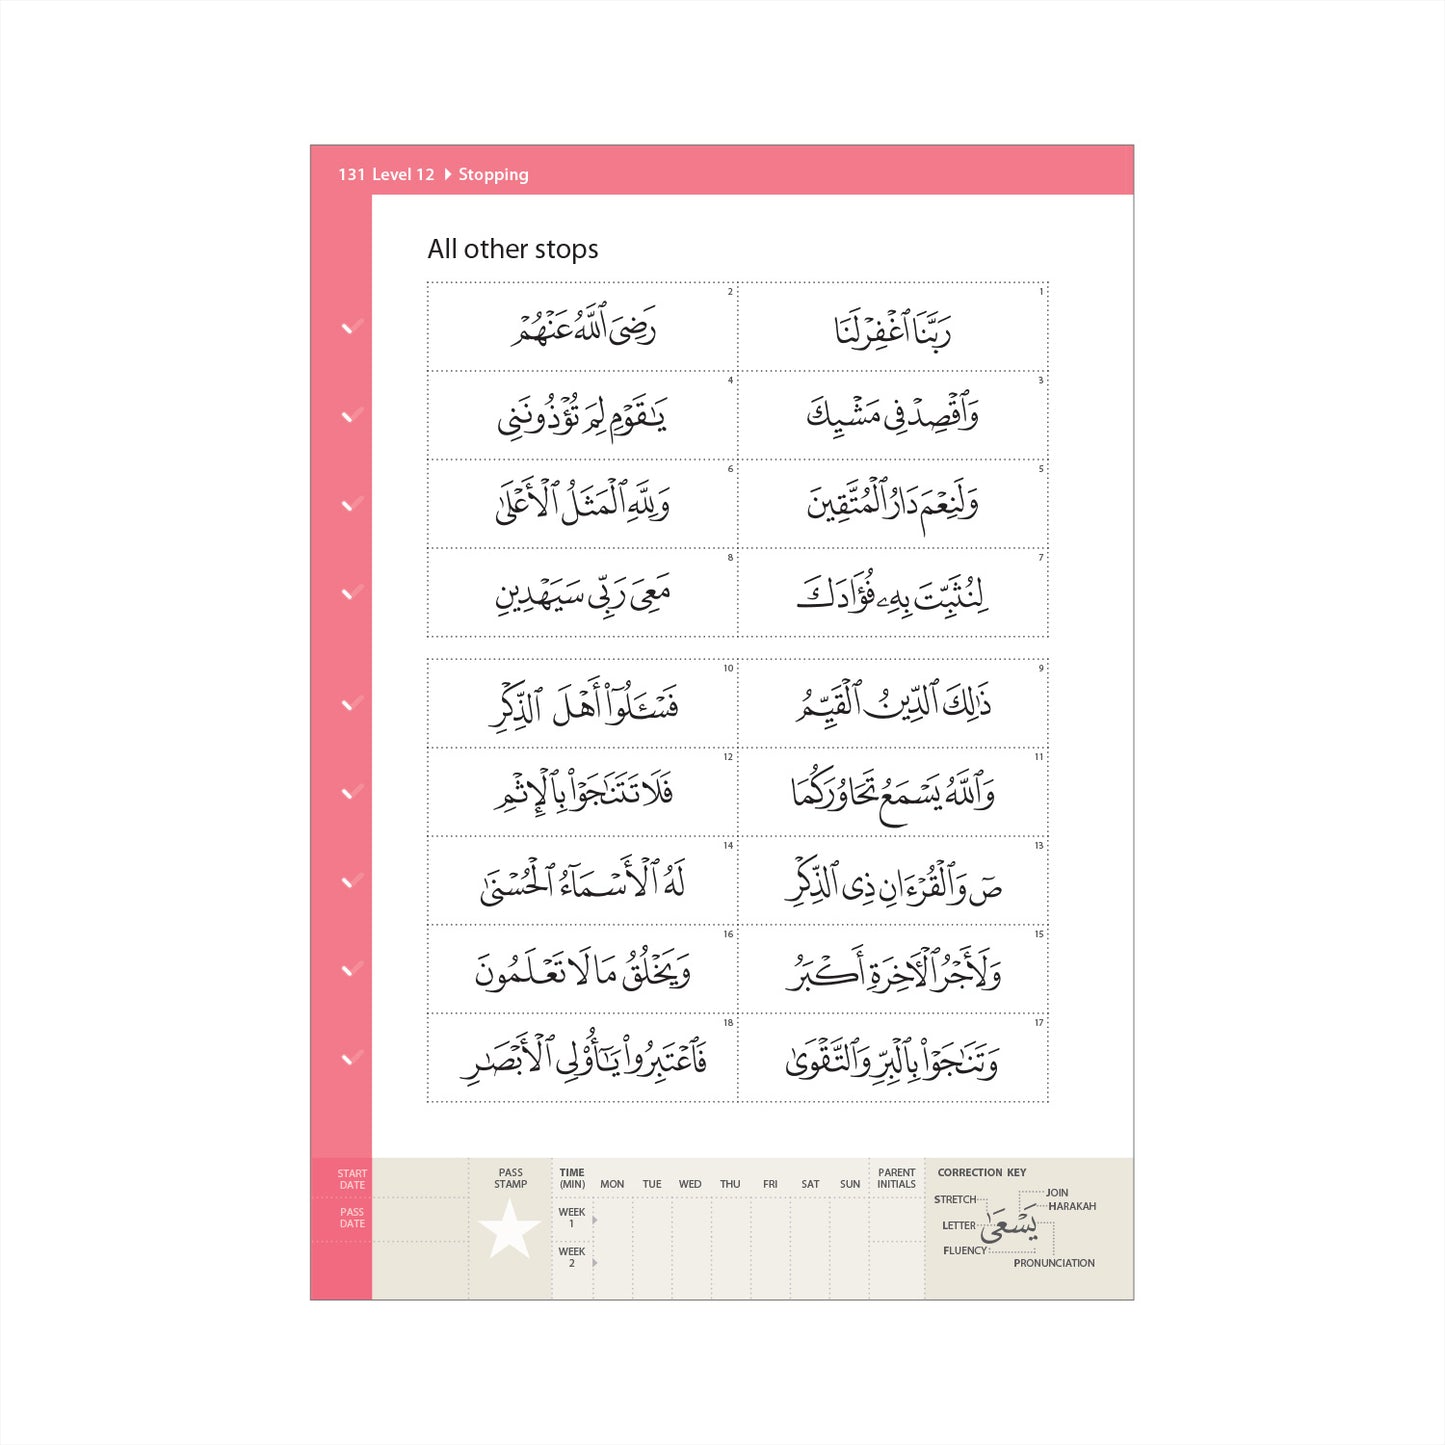 131 Level 12 Stopping
All other stops
1
رَبَّنَا ٱغْفِرْ لَنَا
2
رَضِىَ ٱللَّهُ عَنْهُمْ
3
وَٱقْصِدْ فِى مَشْيِكَ
4
يَـٰقَوْمِ لِمَ تُؤْذُونَنِى
5
وَلَنِعْمَ دَارُ ٱلْمُتَّقِينَ
6
وَلِلَّهِ ٱلْمَثَلُ ٱلْأَعْلَىٰ
7
لِنُثَبِّتَ بِهِۦ فُؤَادَكَ
8
مَعِىَ رَبِّى سَيَهْدِينِ
9
ذَٰلِكَ ٱلدِّينُ ٱلْقَيِّمُ
10
فَسْـَٔلُوٓا۟ أَهْلَ ٱلذِّكْرِ
11
وَٱللَّهُ يَسْمَعُ تَحَاوُرَكُمَا
12
فَلَا تَتَنَـٰجَوْا۟ بِٱلْإِثْمِ
13
صٓ وَٱلْقُرْءَانِ ذِى ٱلذِّكْرِ
14
لَهُ ٱلْأَسْمَآءُ ٱلْحُسْنَىٰ
15
وَلَأَجْرُ ٱلْـَٔاخِرَةِ أَكْبَرُ
16
وَيَخْلُقُ مَا لَا تَعْلَمُونَ
17
وَتَنَـٰجَوْا۟ بِٱلْبِرِّ وَٱلتَّقْوَىٰ
18
فَٱعْتَبِرُوا۟ يَـٰٓأُو۟لِى ٱلْأَبْصَـٰرِ
START DATE
PASS DATE
PASS STAMP
TIME (MIN) MON TUE WED THU FRI SAT SUN
WEEK 1
WEEK 2
PARENT INITIALS
CORRECTION KEY
JOIN
STRETCH
HARAKAH
يَسْعَىٰ
LETTER
FLUENCY
PRONUNCIATION